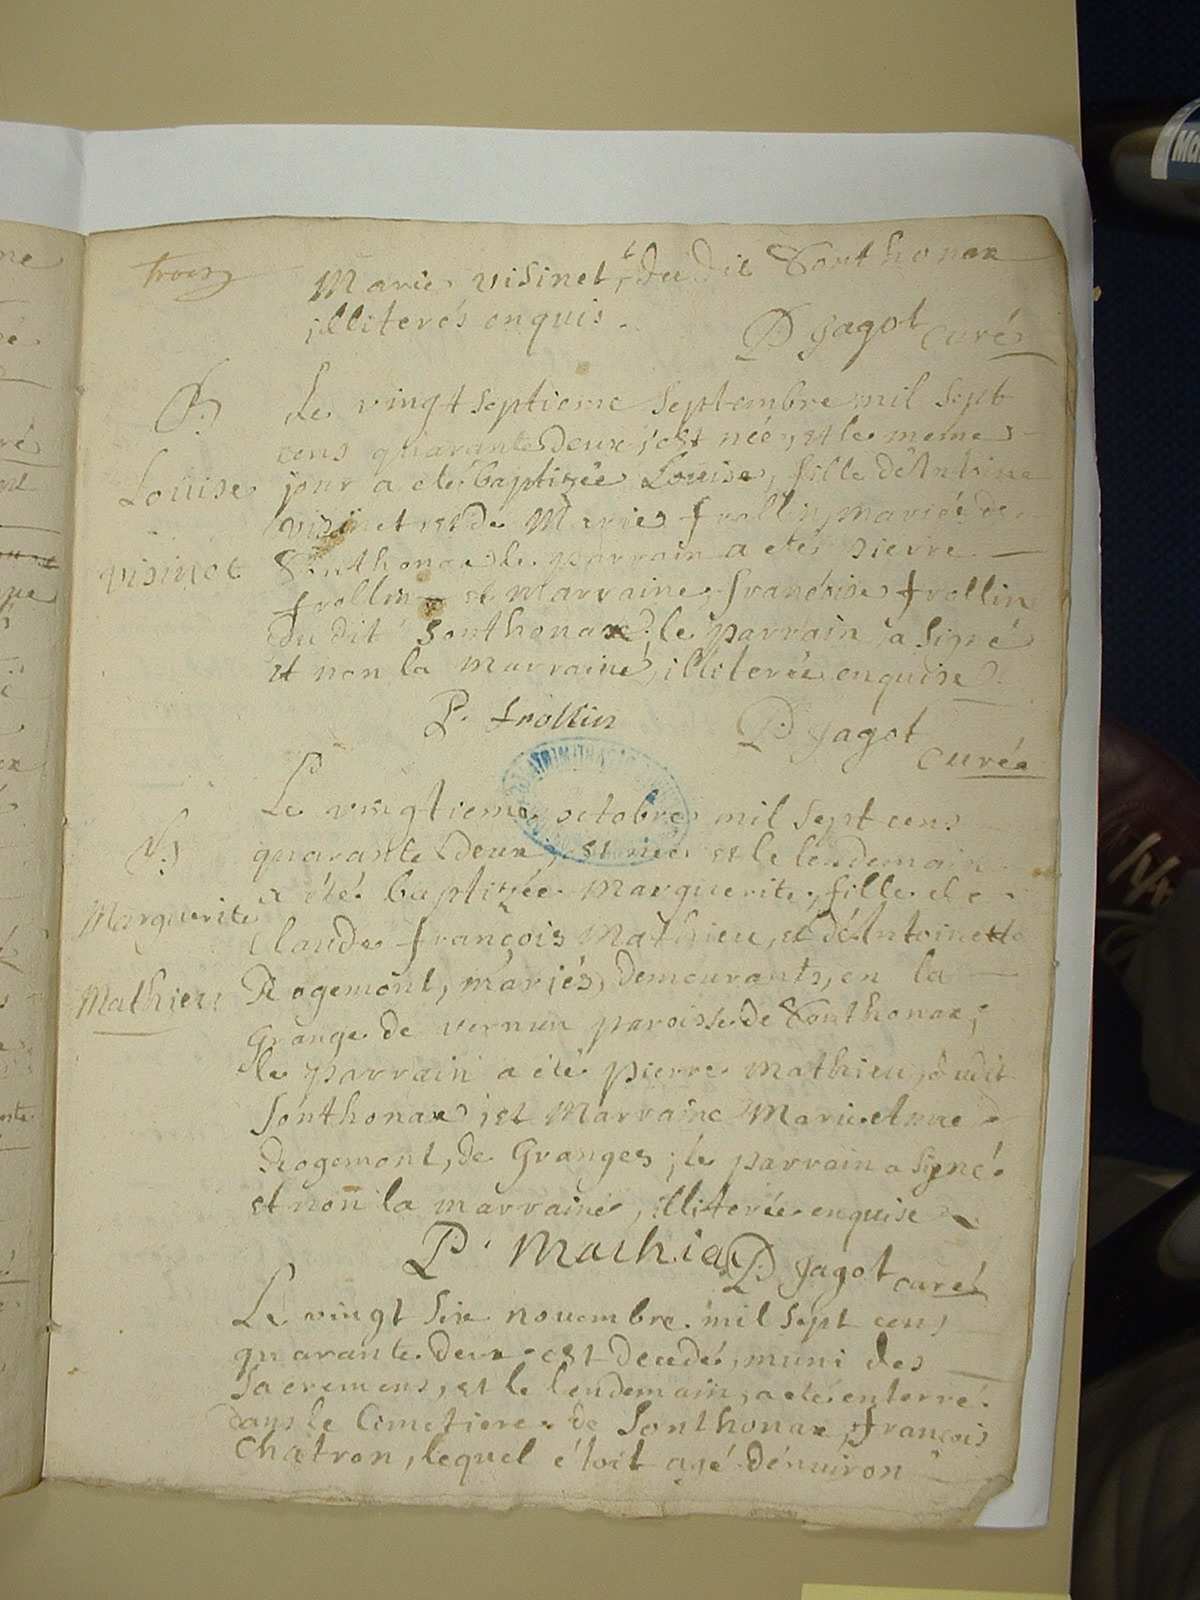 trois
Marie visinet, du dit Sonthonax
illiterés enquis.
P. Jagot curé
Le vingt septieme septembre mil sept
cens quarante deux, est née, et le meme
jour a eté baptizée Louise, fille d'Antoine
visinet et de Marie frollin, mariés de
Sonthonax, le parrain a eté pierre
frollin et Marraine, françoise frollin
du dit Sonthonax; le parrain a signé
et non la marraine, illiterée enquise.
Louise
visinet
P. frollin
P. Jagot
curé
Le vingtieme octobre mil sept cens
quarante deux, est née et le lendemain
a été baptizée Marguerite, fille de
Claude françois Mathieu, et d'Antoinette
Rogemont, mariés, demeurants, en la
Grange de vernun paroisse de Sonthonax;
le parrain a été pierre Mathieu, dudit
Sonthonax, et Marraine Marie Anne
Rogemont, de Granges; le parrain a signé
et non la marraine, illiterée enquise
Marguerite
Mathieu
P. Mathieu
P. Jagot curé
Le vingt six novembre mil sept cens
quarante deux est decedé, muni des
Sacremens, et le lendemain, a eté enterré
dans le Cimetiere de Sonthonax, françois
Chatron, lequel étoit agé d'énuiron